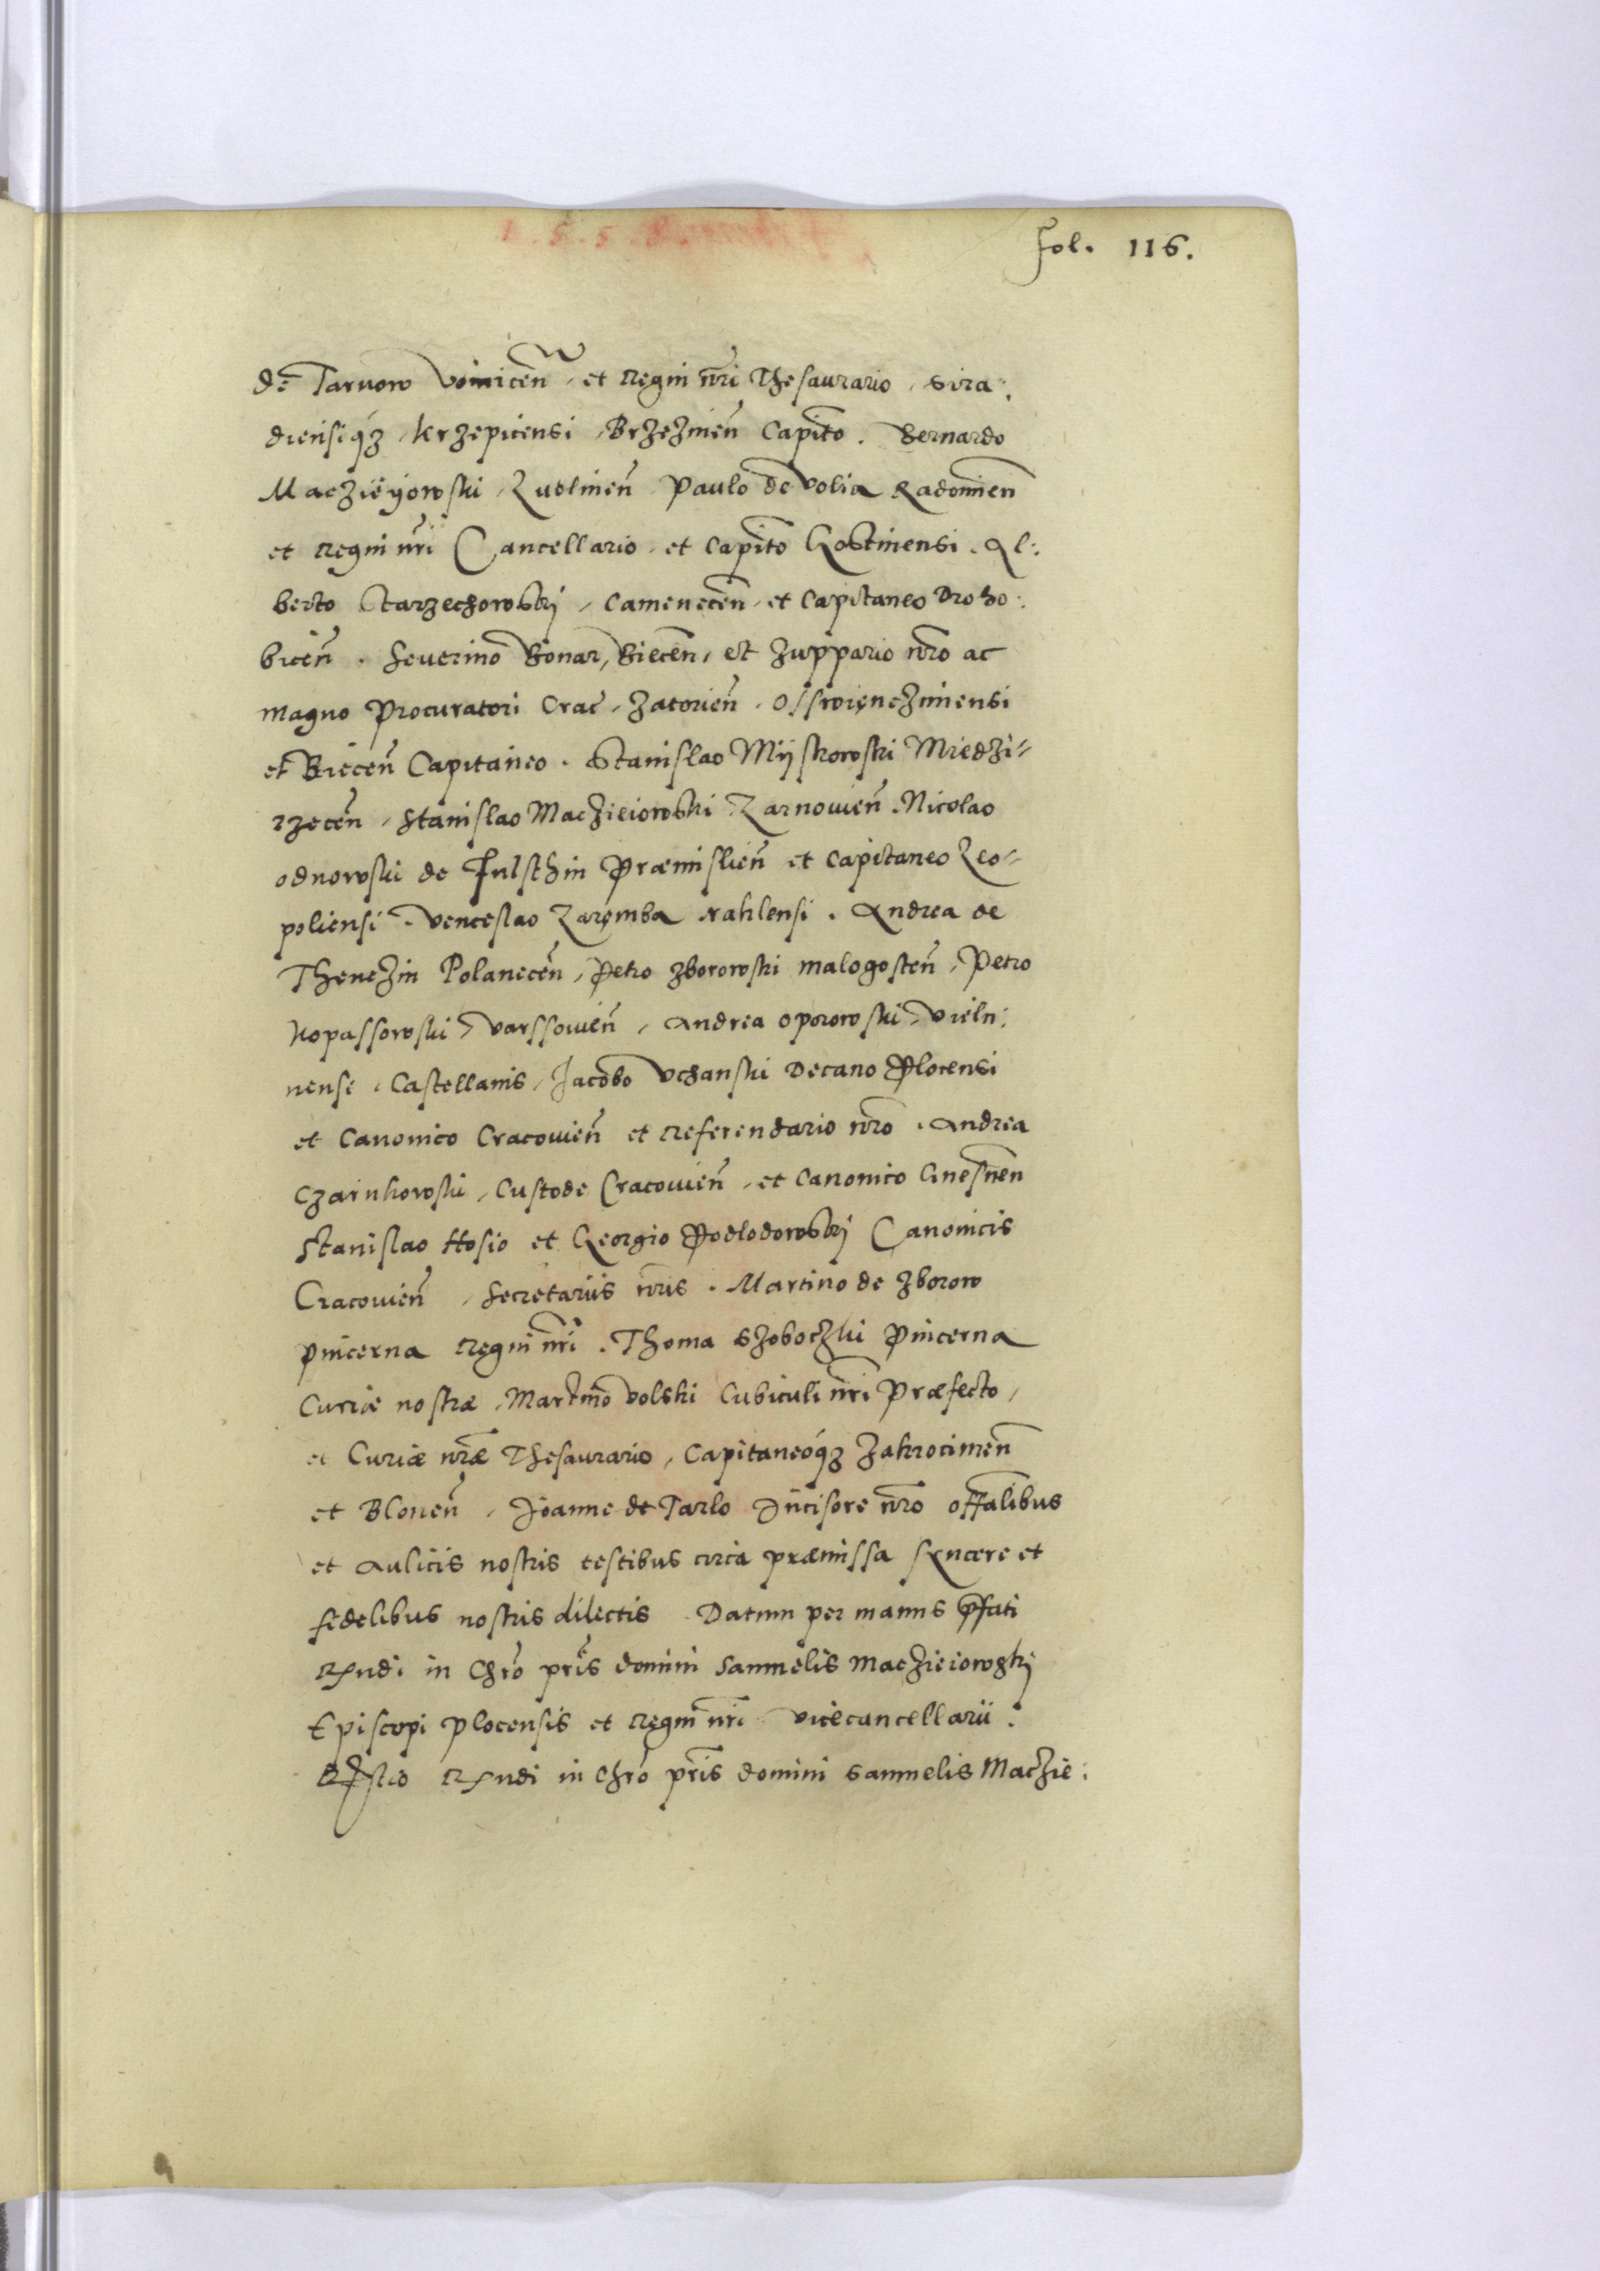 fol. 116.
de Tarnow Voinicen̄, et Regni nr̄i Thesaurario, Sira:
diensiqȝ, Krzepicensi, Brzeźnien̄ Capit̄o. Bernardo
Macźieyowski, Lublinen̄ Paulo de Volia Radomien̄
et Regni nr̄i Cancellario, et Capit̄o Gostinensi. Al:
berto Starzechowskj, Camenecen̄, et Capitaneo Droho:
bicen̄. Seuerino Bonar, Biecen̄, et Zuppario nr̄o ac
magno Procuratori Crac̄, Zatorien̄, Osswięneźimensi
et Biecen̄ Capitaneo. Stanislao Myskowski Miedźi=
rzecen̄, Stanislao Macźieiowski Zarnowien̄. Nicolao
odnowski de Fulsthin Præmislien̄ et Capitaneo Leo=
poliensi. Venceslao Zaręmba Kahlensi. Andrea de
Thencźin Polanecen̄, Petro Zborowski malogosten̄, Petro
Kopassowski, Varssowien̄, Andrea oporowski, Vieln:
nense. Castellanis, Jacobo Vchanski Decano Plocensi
et Canonico Cracouien̄ et Referendario nr̄o. Andrea
Czarnkowski, Custode Cracouien̄, et Canonico Gnesnen̄
Stanislao Hosio et Georgio Podlodowskj Canonicis
Cracouien̄, Secretariis nr̄is. Martino de Zborow
pincerna Regni nr̄i. Thoma Szoboczki Pincerna
Curiæ nostræ, Martino Volski Cubiculi nr̄i Præfecto,
et Curiæ nr̄æ Thesaurario, Capitaneóqȝ Zakrocimen̄
et Blonen̄, Joanne de Tarlo Incisore nr̄o off̄alibus
et Aulicis nostris testibus circa præmissa syncere et
fidelibus nostris dilectis. Datum per manus p̄fati
Rx̄ndi in Chr̄o pr̄is domini Samuelis Macźieiowskj
Episcopi Plocensis et Regni nr̄i Vicecancellarii.
Rx̄ndi in Chr̄o pr̄is domini Samuelis Macźie: